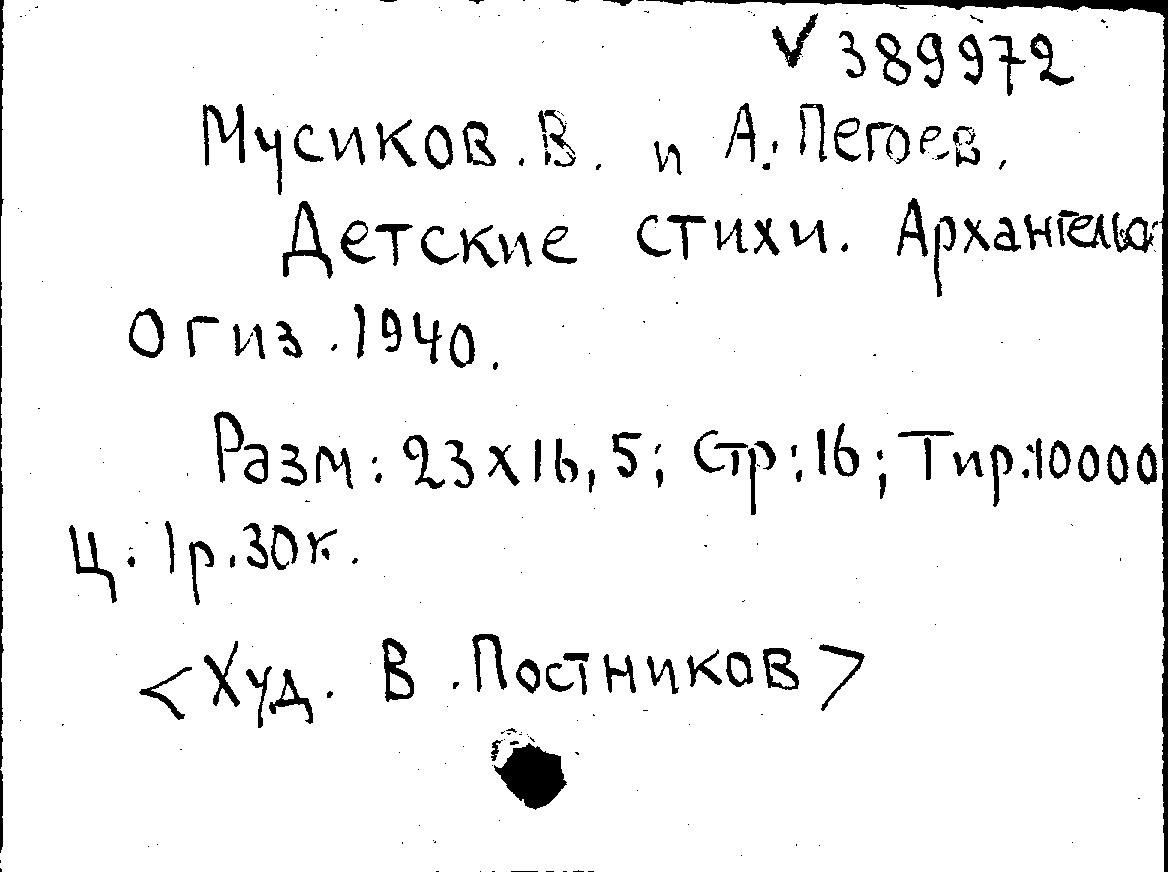 √ 389972
Мусиков. В. и А. Пегоев.
Детские стихи. Архангельс
Огиз. 1940.
Разм: 23х16,5; Стр: 16; Тир: 10000
Ц. 1р. 30к.
<Худ. В. Постников>